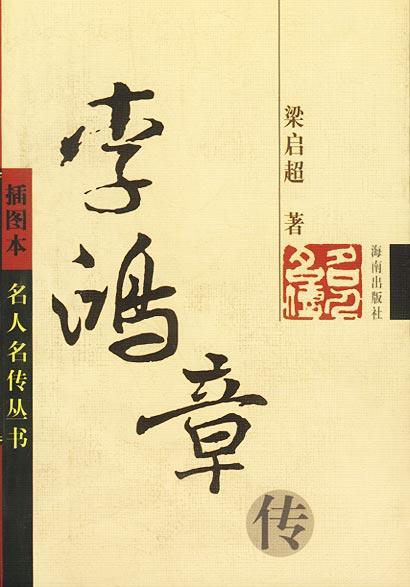 李鸿章
传
梁启超 著
名人
名传
海南出版社
插图本
名人名传丛书